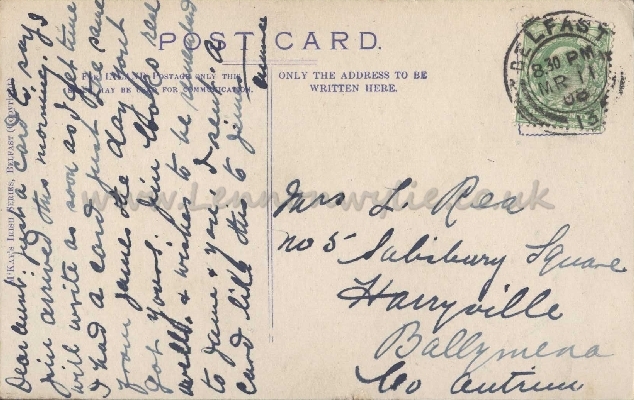 POST CARD.
FOR INLAND POSTAGE ONLY THIS
MAY BE USED FOR COMMUNICATION.
ONLY THE ADDRESS TO BE
WRITTEN HERE.
BELFAST
8.30 PM
MR 11
08
13
McKAY'S IRISH SERIES, BELFAST (COPYRIGHT)
Dear Aunt, just a card to say
Jim arrived this morning. I
will write as soon as I get time
I had a card just the same
from James the day I
got yours. Jim looks so
well. & wishes to be remembered
to Jame & you. I send
card like this to Jim.
www.Lennonwylie.co.uk
Mrs L Rea
no 5 Salisbury Square
Harryville
Ballymena
Co Antrim